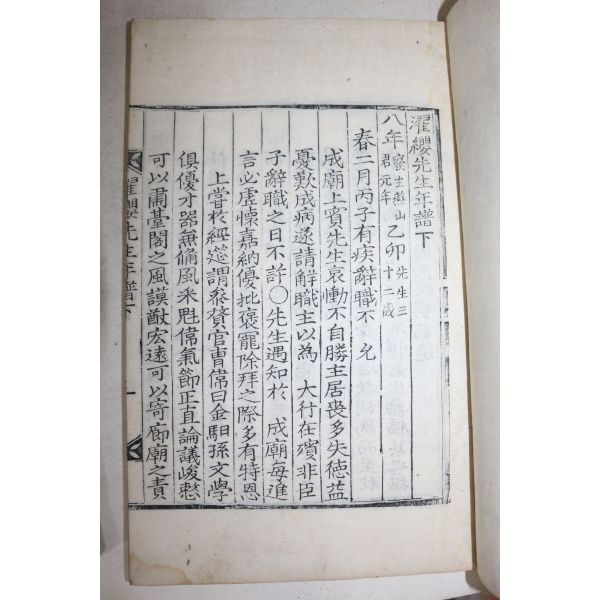 濯纓先生年譜下
八年 燕主燕山君元年 乙卯 先生三十二歲
春二月丙子有疾辭職不 允
成廟上賓先生哀慟不自勝主居喪多失德益
憂歎成病遂請解職主以為 大行在殯非臣
子辭職之日不許○先生遇知於 成廟每進
言必虛懷嘉納優批褒寵除拜之際多有特恩
上嘗於經筵謂參贊官曺偉曰金馹孫文學
俱優才器無偹風采魁偉氣節正直論議峻慤
可以肅臺閣之風謨猷宏遠可以寄廊廟之責
濯纓先生年譜下 一